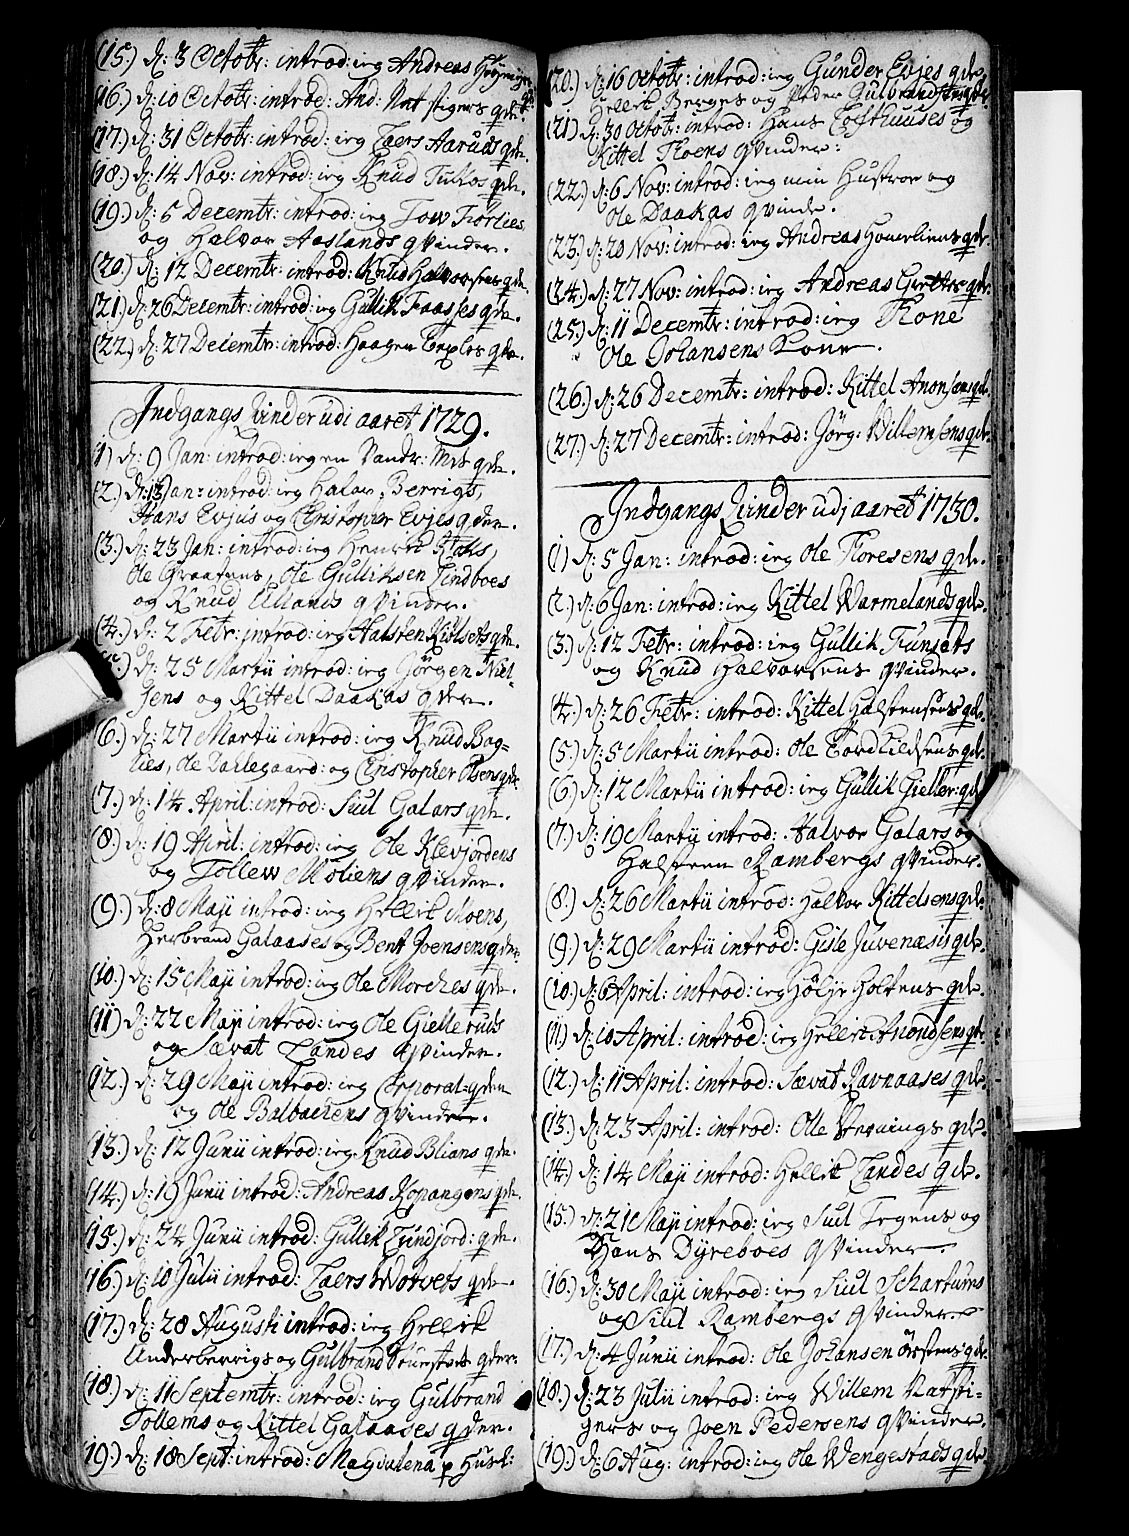 (15.) d: 3 Octobr: introd: ieg Andreas
(16.) d: 10 Octobr: introd: And: Natstigers qde.
(17.) d: 31 Octobr: introd: ieg Laers Aaruds qde.
(18.) d: 14 Nov: introd: ieg Knud Tufos qde.
(19.) d: 5 Decembr: introd: ieg Tow
og Halvor Aaslands qvinder.
(20.) d: 12 Decembr: introd: Knud Halvorsens qde.
(21.) d: 26 Decembr: introd: ieg Gullik Faasses qde.
(22.) d: 27 Decembr: introd: Haagen qde.
Indgangs kvinder udi aaret 1729.
(1) d: 9 Jan: introd: ieg en qde.
(2.) d: 13 Jan: introd: ieg Halvor Berrigs,
Hans Evjus og Christopher Evjes qder.
(3.) d: 23 Jan: introd: ieg Henrik
Ole Graafens, Ole Gulliksen Lindboes
og Knud Ullands qvinder.
(4.) d: 2 Febr: introd: ieg Halsten qde.
d: 25 Martii introd: ieg Jörgen Niel-
sens og Kittel Daakas qder.
(6.) d: 27 Martii introd: ieg Knud Bag-
lies, Ole Dallegaard: og Christopher Olsens qde.
(7.) d: 14 April: introd: Siul Galaas qde.
(8.) d: 19 April: introd: ieg Ole Klevjordens
og Tollew Moliens qvinder.
(9.) d: 8 Maji introd: ieg Hellik Moens,
Herbrand Galaases og Bent Joensens qder.
(10.) d: 15 Maji introd: ieg Ole Morches qde.
(11) d: 22 Maji introd: ieg Ole Gielleruds
og Sævat Landes qvinder.
(12.) d: 29 Maji introd: ieg Corporal: qden
og Ole Balbachens qvinder.
(13.) d: 12 Junii introd: ieg Knud Blians qde.
(14.) d: 19 Junii introd: Andreas Kopangens qde.
15.) d: 24 Junii introd: Gullik Lundjord: qde.
(16.) d: 10 Julii introd: Laers Worvets qde.
(17.) d: 28 Augusti introd: ieg Hellik
Underberrigs og Gulbrand qder.
(18.) d: 11 Septembr: introd: ieg Gulbrand
Tollems og Kittel Galaases qder.
19.) d: 18 Sept: introd: Magdalena Hust:
(20.) d: 16 Octobr: introd: ieg Gunder Evjes qde.
Hellik Berges og Peder Gulbrandsens qde
(21) d: 30 Octobr: introd: Hans Lofthuuses og
Kittel Floens qvinder:
(22.) d: 6 Nov: introd: ieg min Hustroe og
Ole Daakas qvinde.
(23.) d: 20 Nov: introd: ieg Andreas qde.
(24.) d: 27 Nov: introd: ieg Andreas qde.
(25.) d: 11 Decembr: introd: ieg Kone
Ole Johansens Kone.
(26.) d: 26 Decembr: introd: Kittel Anonsens qde.
(27.) d: 27 Decembr: introd: Jörg: Willemsens qde.
Indgangs kvinder udj aaret 1730.
(1) d: 5 Jan: introd: ieg Ole Floresens qde.
(2.) d: 6 Jan: introd: ieg Kittel Warmelands qde.
(3.) d: 12 Febr: introd: ieg Gullik Funsets
og Knud Halvorsens qvinder.
(4.) d: 26 Febr: introd: Kittel Halstensens qde.
(5.) d: 5 Martii introd: Ole Tordkildsens qde.
(6.) d: 12 Martii introd: ieg Gullik Gieller: qde
(7.) d: 19 Martii introd: Halvor Galaas og
Halsteen Rambergs qvinder.
(8.) d: 26 Martii introd: Halvor Kittelsens qde.
(9.) d: 29 Martii introd: Gisle Juvenæsis qde.
(10.) d: 6 April: introd: ieg Hölje Holtens qde.
(11) d: 10 April: introd: ieg Hellik Anondsens qde.
(12.) d: 11 April: introd: Sævat Ravnaases qde.
(13.) d: 23 April: introd: Ole qde.
(14.) d: 14 Maji introd: Hellik Landes qde.
(15.) d: 21 Maji introd: ieg Siul Tegens og
Hans Dyreboes qvinder.
(16.) d: 30 Maji introd: ieg Siul Schartums
og Siul Rambergs qvinder.
(17.) d: 4 Junii introd: Ole Johansen örstens qde.
(18.) d: 23 Julii introd: ieg Willem Natsti-
gers og Joen Pedersens qvinder.
(19.) d: 6 Aug: introd: ieg Ole Wengestads qde.